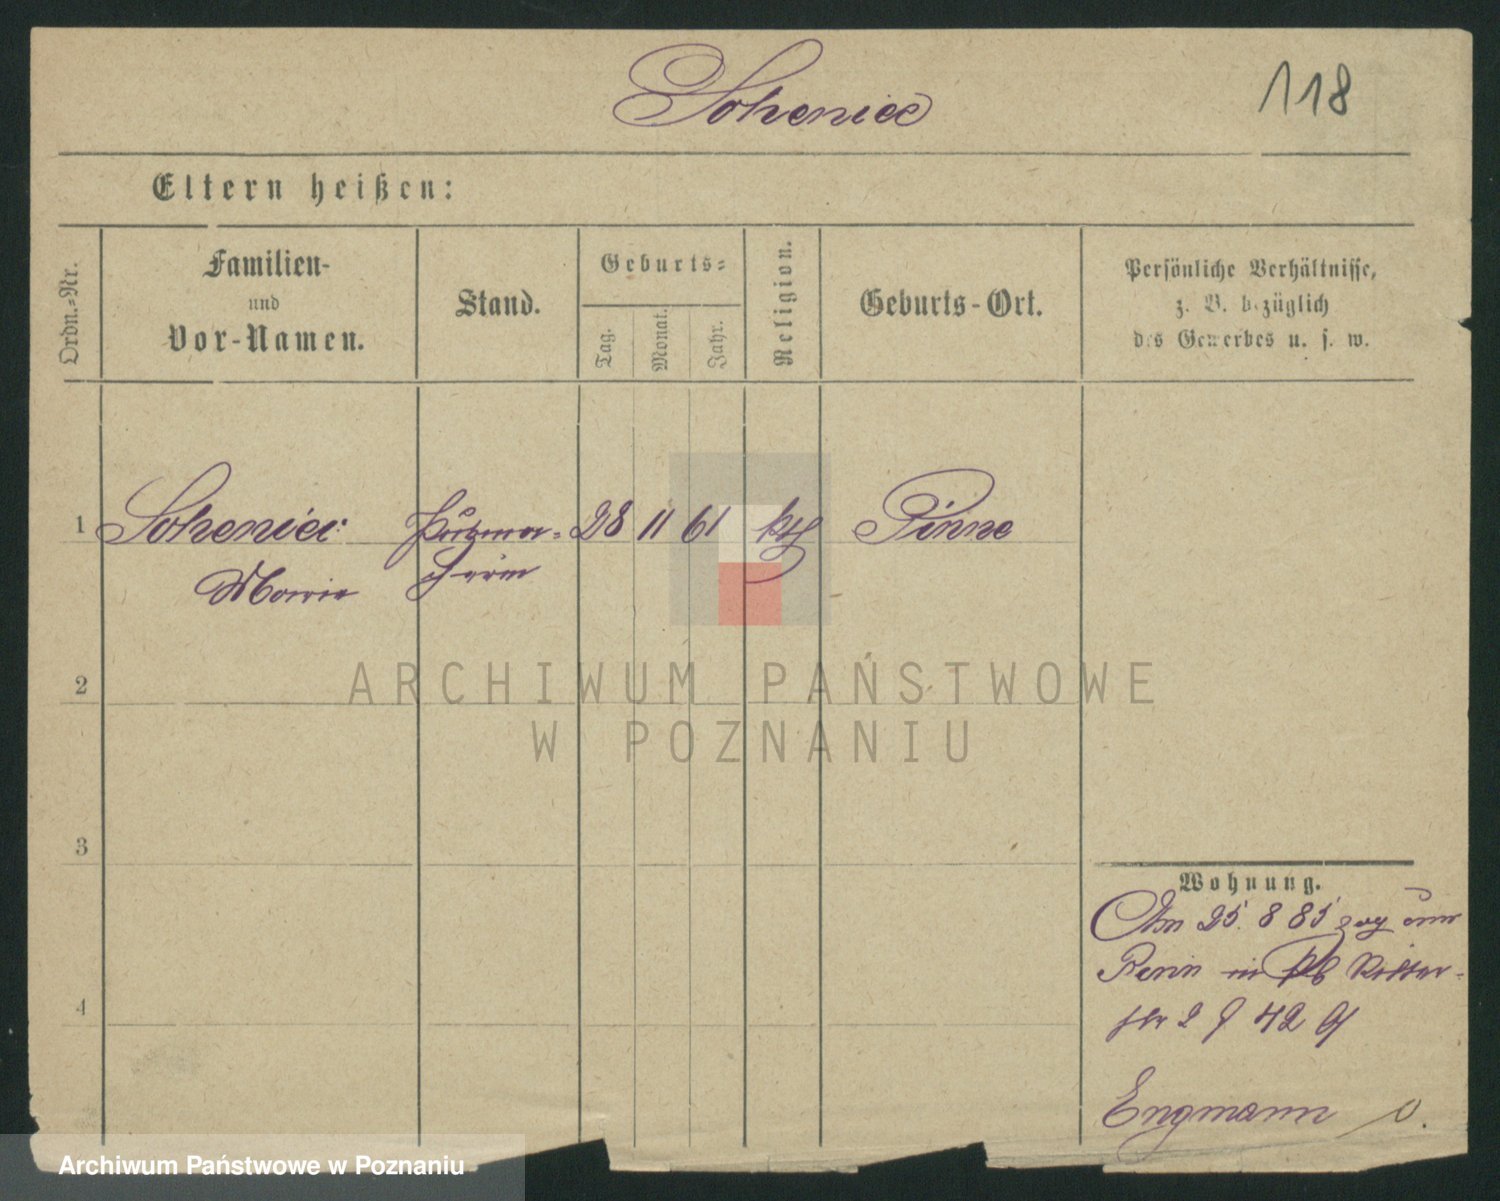 118
Eltern heißen:
Ordn.-Nr.
Familien-
und
Vor-Namen.
Stand.
Geburts-
Tag.
Monat.
Jahr.
Religion.
Geburts-Ort.
Persönliche Verhältnisse,
z. B. bezüglich
des Gewerbes u. s. w.
1
28 11 61 kth Pinne
Marie
2
ARCHIWUM PAŃSTWOWE
W POZNANIU
3
Wohnung.
Am 25. 8 85 zog
in
2 42
4
Engmann
Archiwum Państwowe w Poznaniu